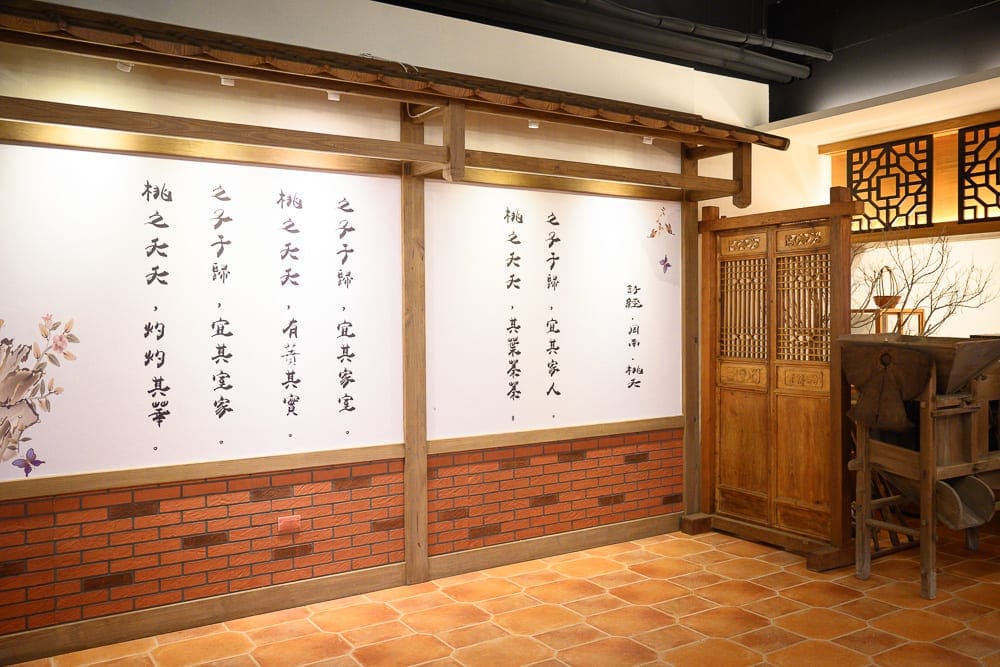 桃之夭夭，灼灼其華。
之子于歸，宜其室家。
桃之夭夭，有蕡其實。
之子于歸，宜其家室。
桃之夭夭，其葉蓁蓁。
之子于歸，宜其家人。
詩經．周南．桃夭